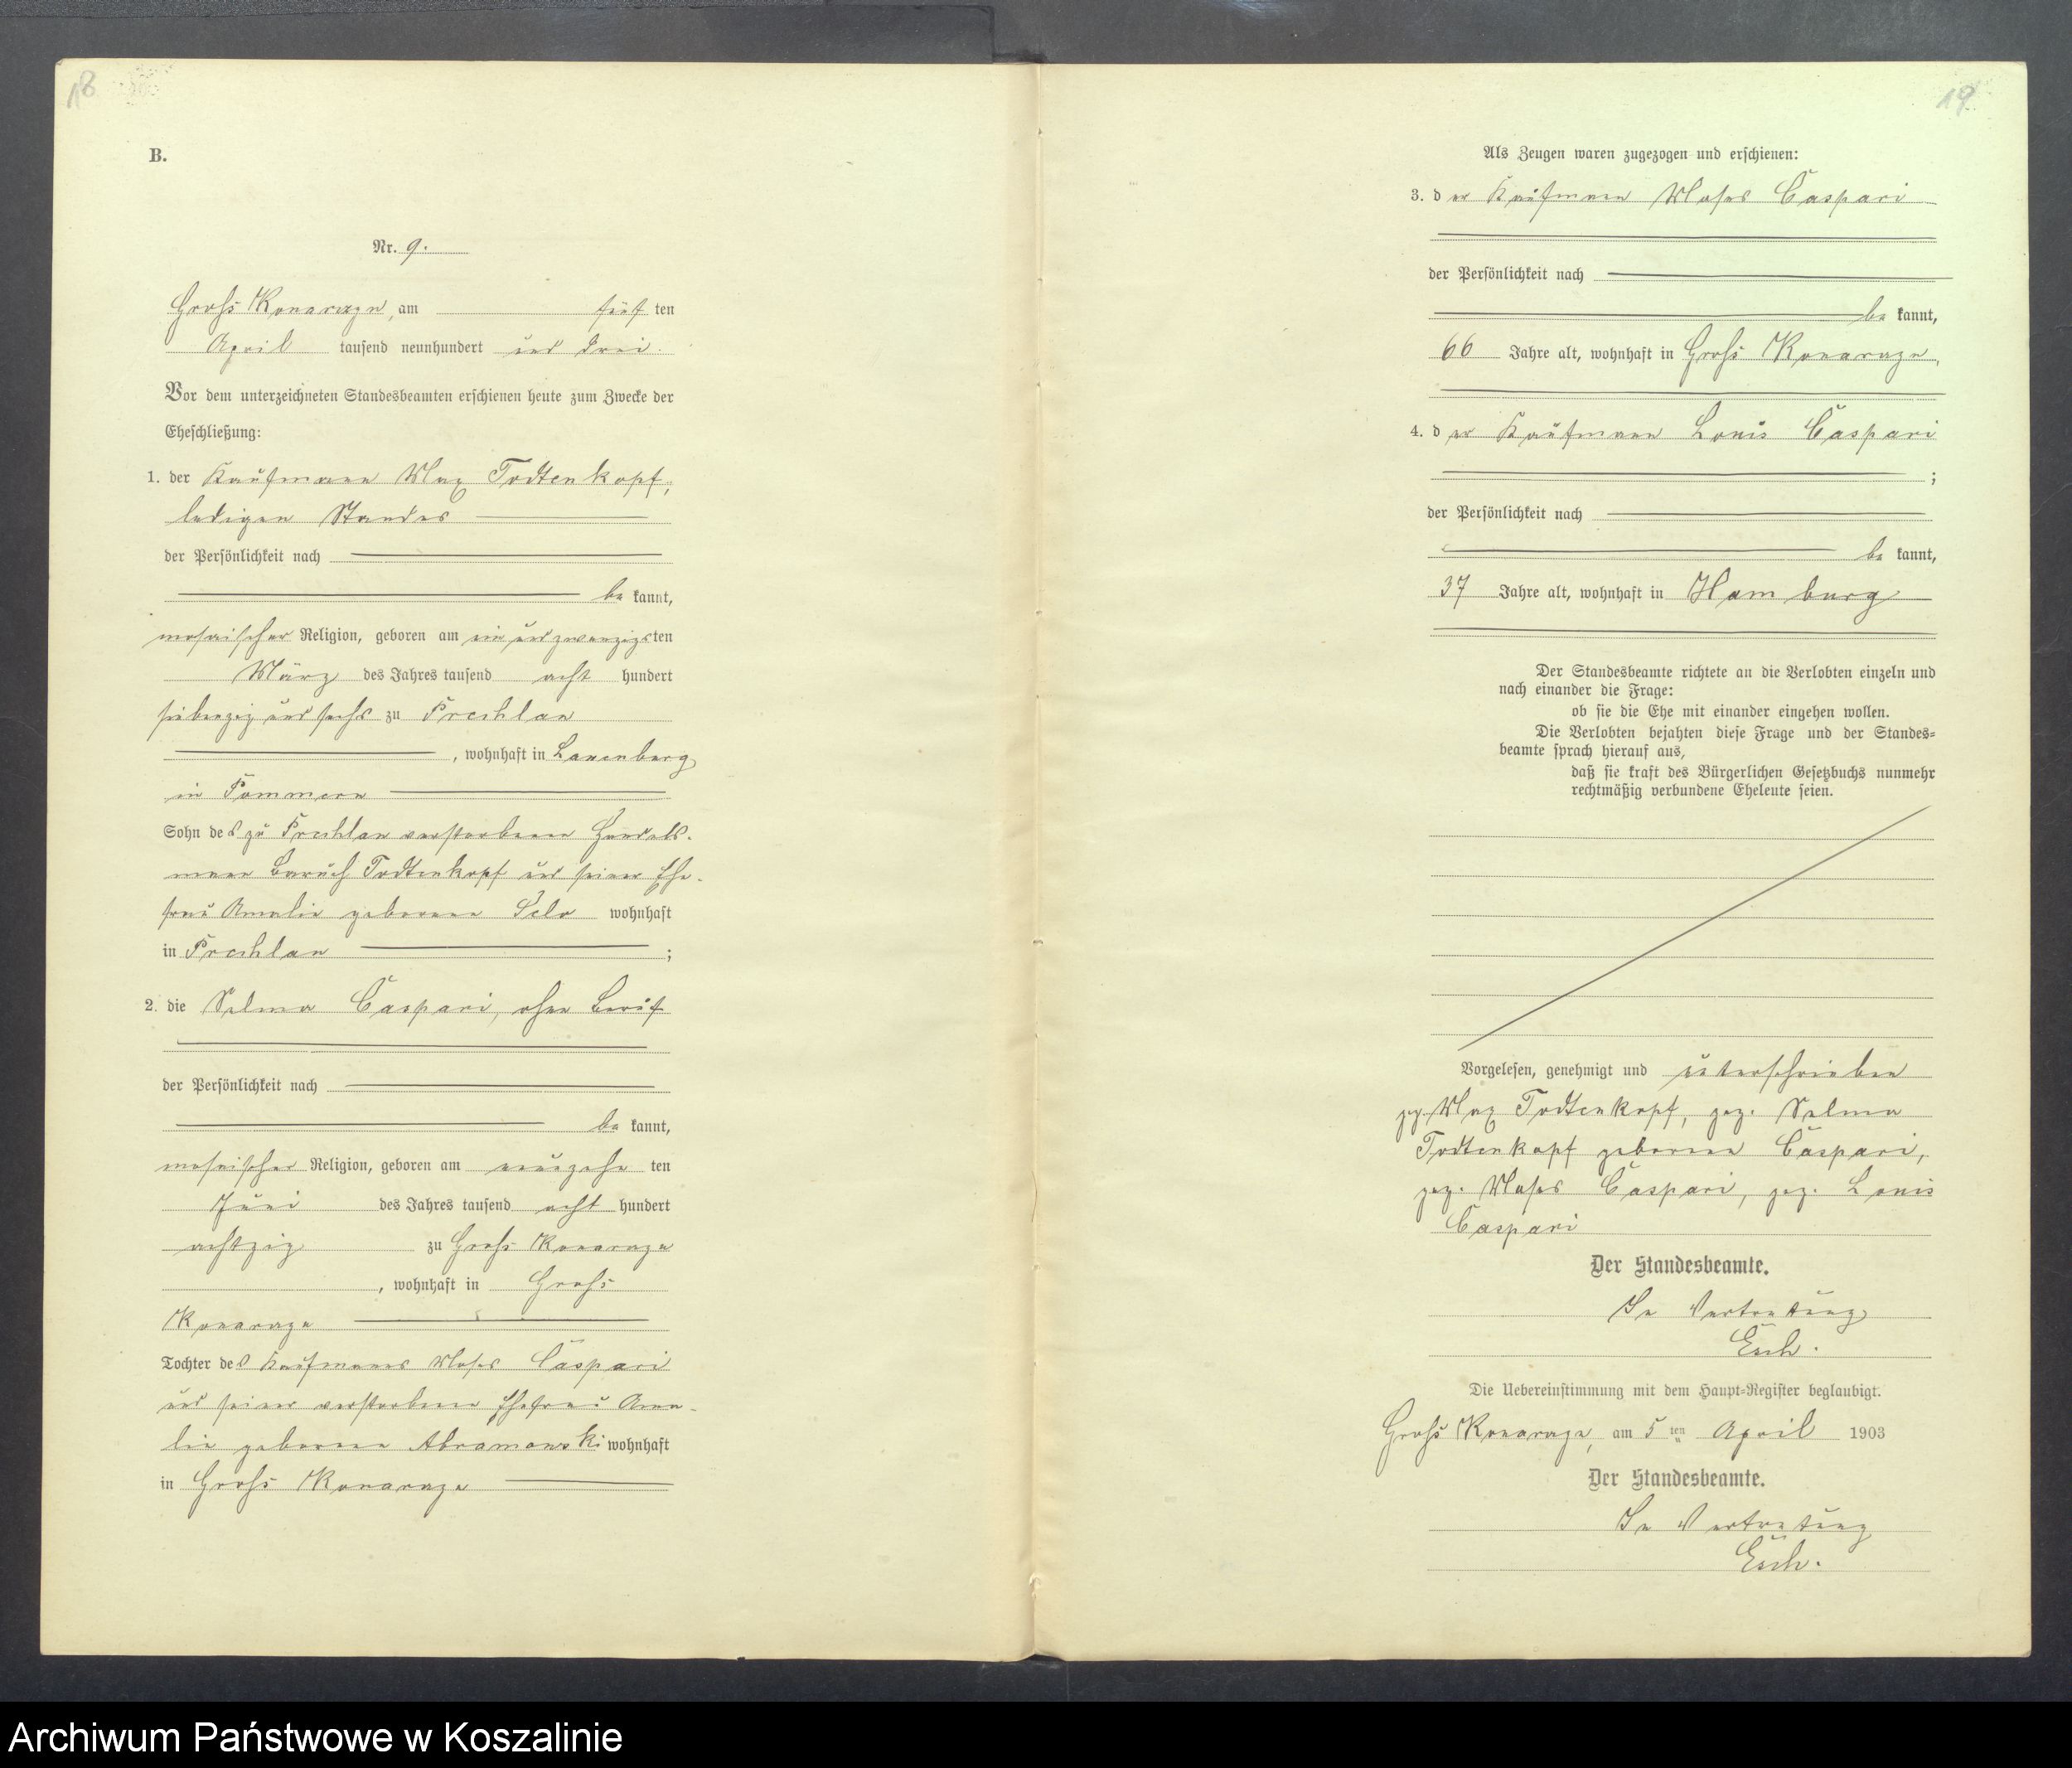 18
B.
Nr. 9.
Groß Konarzyn, am fünf ten
April tausend neunhundert und drei.
Vor dem unterzeichneten Standesbeamten erschienen heute zum Zwecke der
Eheschließung:
1. der Kaufmann Max Todtenkopf,
ledigen Standes
der Persönlichkeit nach
be kannt,
mosaischer Religion, geboren am ein und zwanzigsten
März des Jahres tausend acht hundert
siebenzig und sechs zu Prechlau
, wohnhaft in Lauenburg
in Pommern
Sohn des zu Prechlau verstorbenen Handels-
mann Baruch Todtenkopf und seiner Ehe-
frau Amalie geborene wohnhaft
in Prechlau ;
2. die Selma Caspari, ohne Beruf
der Persönlichkeit nach
be kannt,
mosaischer Religion, geboren am neunzehn ten
Juni des Jahres tausend acht hundert
achtzig zu Groß Konarzyn
, wohnhaft in Groß
Konarzyn
Tochter des Kaufmanns Moses Caspari
und seiner verstorbenen Ehefrau Ama-
lie geborene Abramowski wohnhaft
in Groß Konarzyn
19
Als Zeugen waren zugezogen und erschienen:
3. d er Kaufmann Moses Caspari
der Persönlichkeit nach
be kannt,
66 Jahre alt, wohnhaft in Groß Konarzyn,
4. d er Kaufmann Louis Caspari
;
der Persönlichkeit nach
be kannt,
37 Jahre alt, wohnhaft in Hamburg
Der Standesbeamte richtete an die Verlobten einzeln und
nach einander die Frage:
ob sie die Ehe mit einander eingehen wollen.
Die Verlobten bejahten diese Frage und der Standes-
beamte sprach hierauf aus,
daß sie kraft des Bürgerlichen Gesetzbuchs nunmehr
rechtmäßig verbundene Eheleute seien.
Vorgelesen, genehmigt und unterschrieben
gez. Max Todtenkopf, gez. Selma
Todtenkopf geborene Caspari,
gez. Moses Caspari, gez. Louis
Caspari
Der Standesbeamte.
In Vertretung
Esch.
Die Uebereinstimmung mit dem Haupt-Register beglaubigt.
Groß Konarzyn, am 5 ten April 1903
Der Standesbeamte.
In Vertretung
Esch.
Archiwum Państwowe w Koszalinie